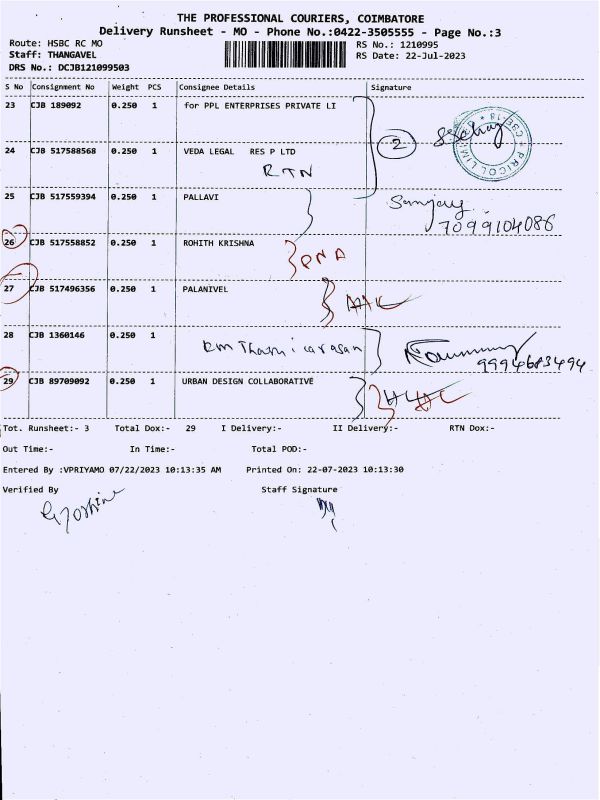 THE PROFESSIONAL COURIERS, COIMBATORE
Delivery Runsheet - MO - Phone No.:0422-3505555 - Page No.:3
Route: HSBC RC MO RS No.: 1210995
Staff: THANGAVEL RS Date: 22-Jul-2023
DRS No.: DCJB121099503
S No Consignment No Weight PCS Consignee Details Signature
23 CJB 189092 0.250 1 for PPL ENTERPRISES PRIVATE LI
2
PRICOL LIM
24 CJB 517588568 0.250 1 VEDA LEGAL RES P LTD
RTN
25 CJB 517559394 0.250 1 PALLAVI Sanjay
7099104086
26 CJB 517558852 0.250 1 ROHITH KRISHNA
PNA
27 CJB 517496356 0.250 1 PALANIVEL
28 CJB 1360146 0.250 1
9994683494
29 CJB 89709092 0.250 1 URBAN DESIGN COLLABORATIVE
Tot. Runsheet:- 3 Total Dox:- 29 I Delivery:- II Delivery:- RTN Dox:-
Out Time:- In Time:- Total POD:-
Entered By :VPRIYAMO 07/22/2023 10:13:35 AM Printed On: 22-07-2023 10:13:30
Verified By Staff Signature